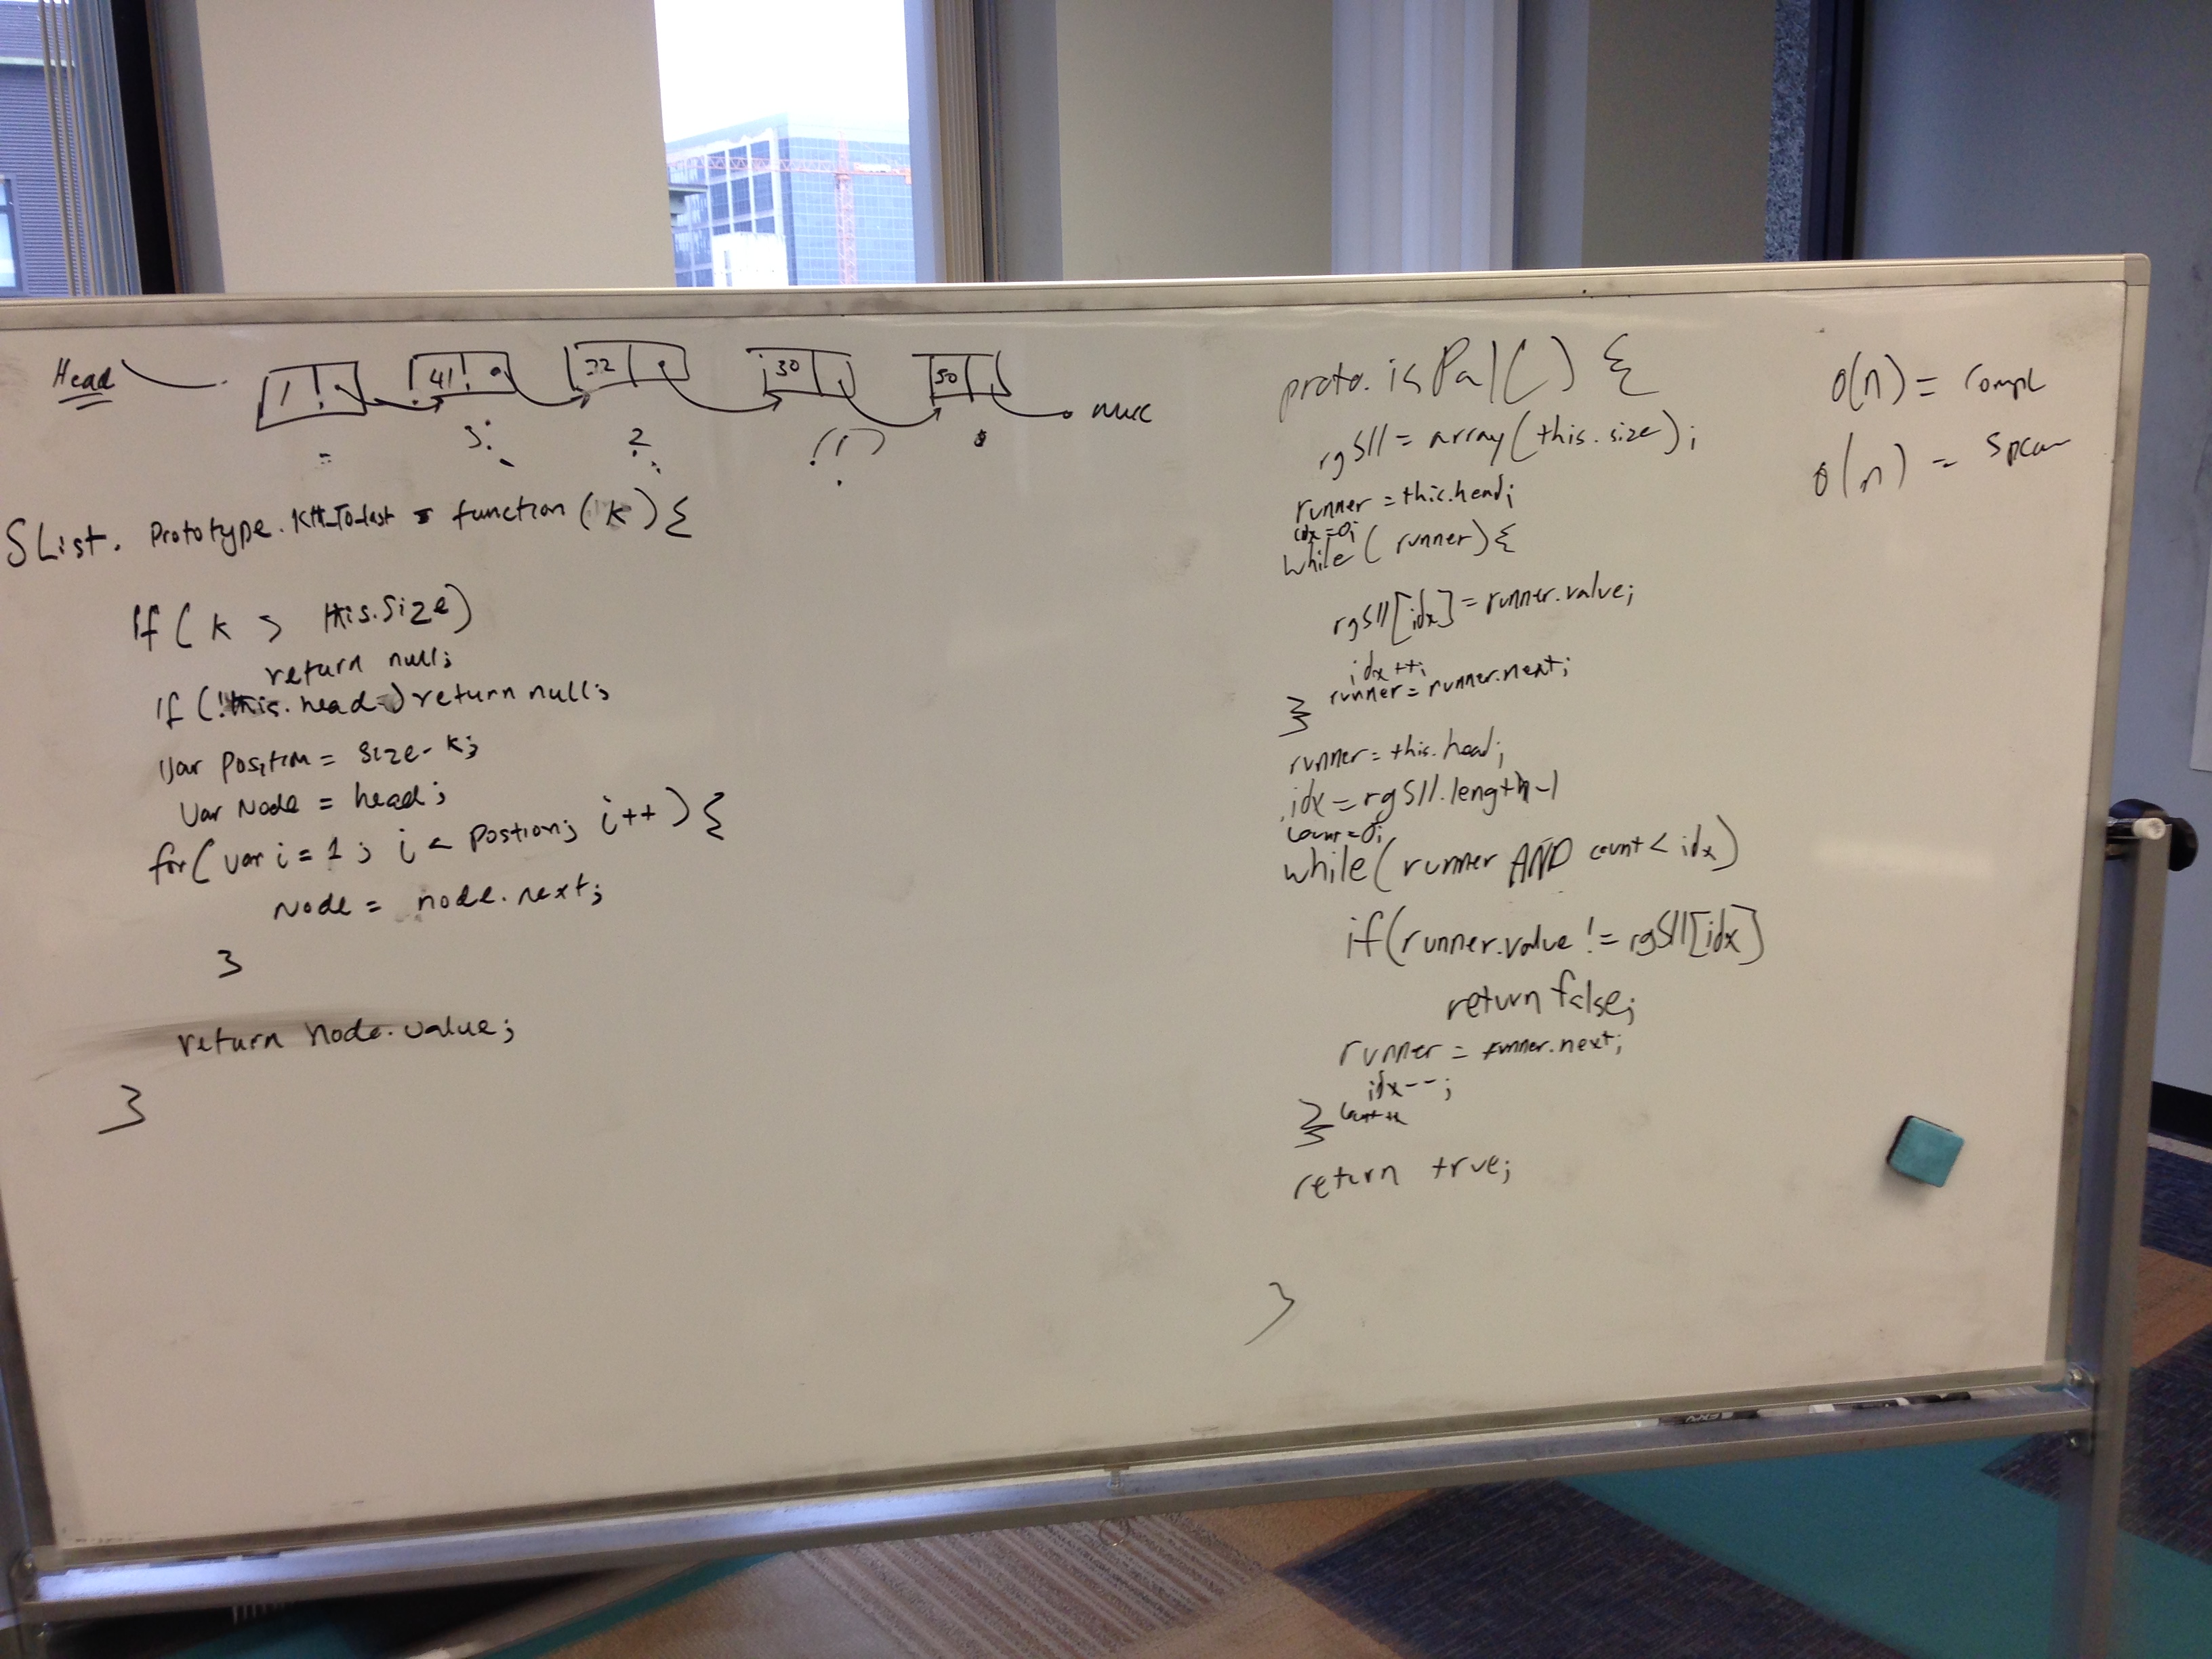 Head
1 41 22 30 50 null
3 2 (1) 0
SList. Prototype.Kth_To_last = function (k) {
If ( k > this.Size)
return null;
If (!this.head) return null;
Var Position = Size - k;
Var Node = head;
for( var i = 1 ; i < Postion; i++ ) {
Node = node.next;
}
return Node.value;
}
proto.isPal( ) {
rgSll = array(this.size);
runner = this.head;
idx = 0;
while ( runner) {
rgSll[idx] = runner.value;
idx ++;
runner = runner.next;
}
runner = this.head;
idx = rgSll.length-1
count = 0;
while( runner AND count < idx)
if(runner.value != rgSll[idx]
return false;
runner = runner.next;
idx--;
} count++
return true;
}
O(n) = Compl
O(n) =